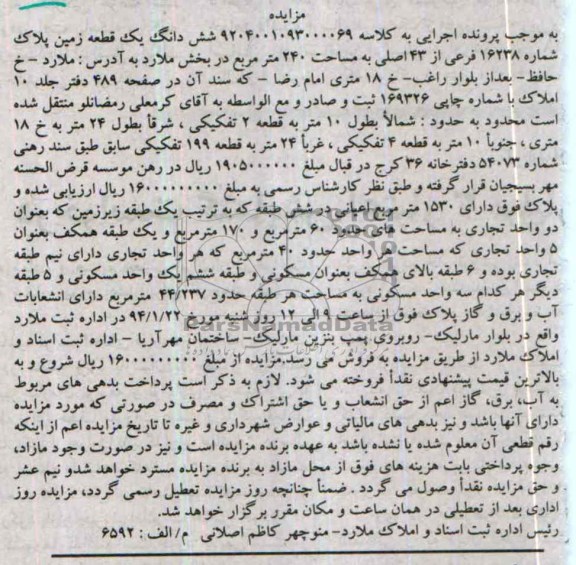 مزایده
به موجب پرونده اجرایی به کلاسه ۹۲۰۴۰۰۱۰۹۳۰۰۰۰۶۹ شش دانگ یک قطعه زمین پلاک
شماره ۱۶۲۳۸ فرعی از ۴۳ اصلی به مساحت ۲۴۰ متر مربع در بخش ملارد به آدرس : ملارد - خ
حافظ- بعداز بلوار راغب- خ ۱۸ متری امام رضا - که سند آن در صفحه ۴۸۹ دفتر جلد ۱۰
املاک با شماره چاپی ۱۶۹۳۲۶ ثبت و صادر و مع الواسطه به آقای کرمعلی رمضانلو منتقل شده
است محدود به حدود : شمالاً بطول ۱۰ متر به قطعه ۲ تفکیکی ، شرقاً بطول ۲۴ متر به خ ۱۸
متری ، جنوباً ۱۰ متر به قطعه ۴ تفکیکی ، غرباً ۲۴ متر به قطعه ۱۹۹ تفکیکی سابق طبق سند رهنی
شماره ۵۴۰۷۳ دفترخانه ۳۶ کرج در قبال مبلغ ۱۹۰۵۰۰۰۰۰۰ ریال در رهن موسسه قرض الحسنه
مهر بسیجیان قرار گرفته و طبق نظر کارشناس رسمی به مبلغ ۱۶۰۰۰۰۰۰۰۰۰ ریال ارزیابی شده و
پلاک فوق دارای ۱۵۳۰ متر مربع اعیانی در شش طبقه که به ترتیب یک طبقه زیرزمین که بعنوان
دو واحد تجاری به مساحت های حدود ۶۰ مترمربع و ۱۷۰ مترمربع و یک طبقه همکف بعنوان
۵ واحد تجاری که مساحت هر واحد حدود ۴۰ مترمربع که هر واحد تجاری دارای نیم طبقه
تجاری بوده و ۶ طبقه بالای همکف بعنوان مسکونی و طبقه ششم یک واحد مسکونی و ۵ طبقه
دیگر هر کدام سه واحد مسکونی به مساحت هر طبقه حدود ۴۴/۲۳۷ مترمربع دارای انشعابات
آب و برق و گاز پلاک فوق از ساعت ۹ الی ۱۲ روز شنبه مورخ ۹۴/۱/۲۲ در اداره ثبت ملارد
واقع در بلوار مارلیک- روبروی پمپ بنزین مارلیک- ساختمان مهرآریا - اداره ثبت اسناد و
املاک ملارد از طریق مزایده به فروش می رسد.مزایده از مبلغ ۱۶۰۰۰۰۰۰۰۰۰ ریال شروع و به
بالاترین قیمت پیشنهادی نقداً فروخته می شود. لازم به ذکر است پرداخت بدهی های مربوط
به آب، برق، گاز اعم از حق انشعاب و یا حق اشتراک و مصرف در صورتی که مورد مزایده
دارای آنها باشد و نیز بدهی های مالیاتی و عوارض شهرداری و غیره تا تاریخ مزایده اعم از اینکه
رقم قطعی آن معلوم شده یا نشده باشد به عهده برنده مزایده است و نیز در صورت وجود مازاد،
وجوه پرداختی بابت هزینه های فوق از محل مازاد به برنده مزایده مسترد خواهد شدو نیم عشر
و حق مزایده نقداً وصول می گردد . ضمناً چنانچه روز مزایده تعطیل رسمی گردد، مزایده روز
اداری بعد از تعطیلی در همان ساعت و مکان مقرر برگزار خواهد شد.
رئیس اداره ثبت اسناد و املاک ملارد- منوچهر کاظم اصلانی م/ الف : ۶۵۹۲
ParsNamadData